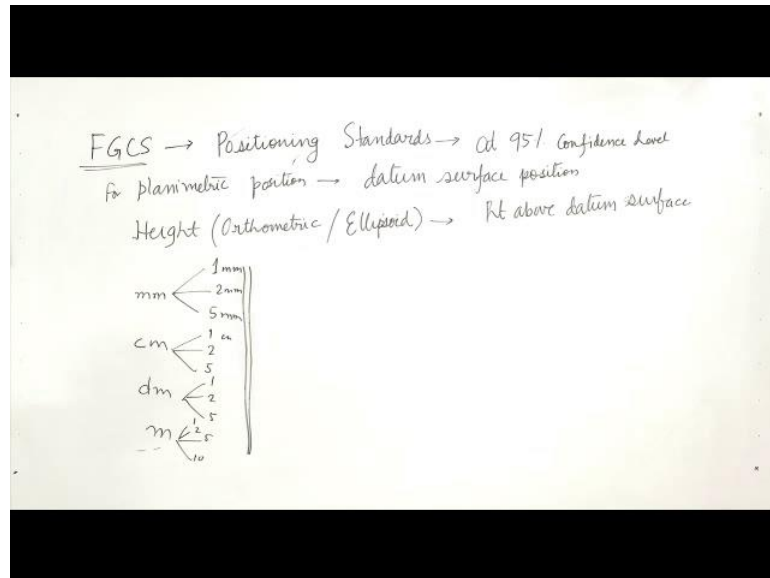 FGCS → Positioning Standards → at 95% Confidence Level
For planimetric position → datum surface position
Height (Orthometric / Ellipsoid) → Pt above datum surface
mm 1mm
2mm
5mm
cm 1 cm
2
5
dm 1
2
5
m 1
2
5
10